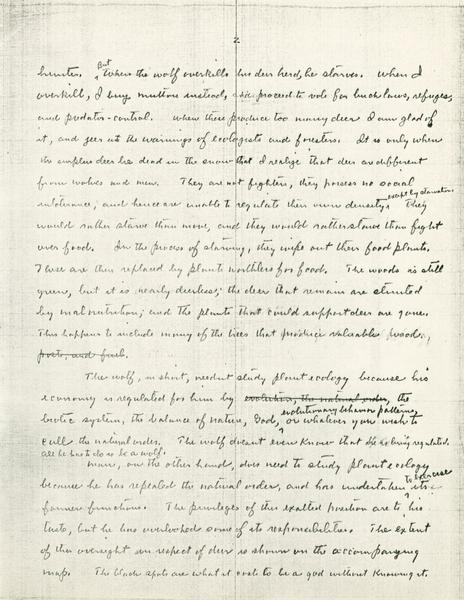 2
hunter. But When the wolf overkills his deer herd, he starves. When I
overkill, I buy mutton instead, and proceed to vote for buck laws, refuges,
and predator-control. When these produce too many deer I am glad of
it, and jeer at the warnings of ecologists and foresters. It is only when
the surplus deer lie dead in the snow that I realize that deer are different
from wolves and men. They are not fighters, they possess no social
intolerance, and hence are unable to regulate their own density, except by starvation. They
would rather starve than move, and they would rather starve than fight
over food. In the process of starving, they wipe out their food plants.
These are then replaced by plants worthless for food. The woods is still
green, but it is nearly deerless; the deer that remain are stunted
by malnutrition; and the plants that could support deer are gone.
This happens to include many of the trees that produce valuable wood,
posts, and fuel.
The wolf, in short, needn't study plant ecology because his
economy is regulated for him by evolution, the natural order, the
biotic system, the balance of nature, God, evolutionary behavior patterns, or whatever you wish to
call the natural order. The wolf doesn't even know that he is being regulated.
all he has to do is be a wolf.
Man, on the other hand, does need to study plant ecology
because he has repealed the natural order, and has undertaken to exercise its
former functions. The privileges of this exalted position are to his
taste, but he has overlooked some of its responsibilities. The extent
of this oversight in respect of deer is shown on the accompanying
map. The black spots are what it costs to be a god without knowing it.